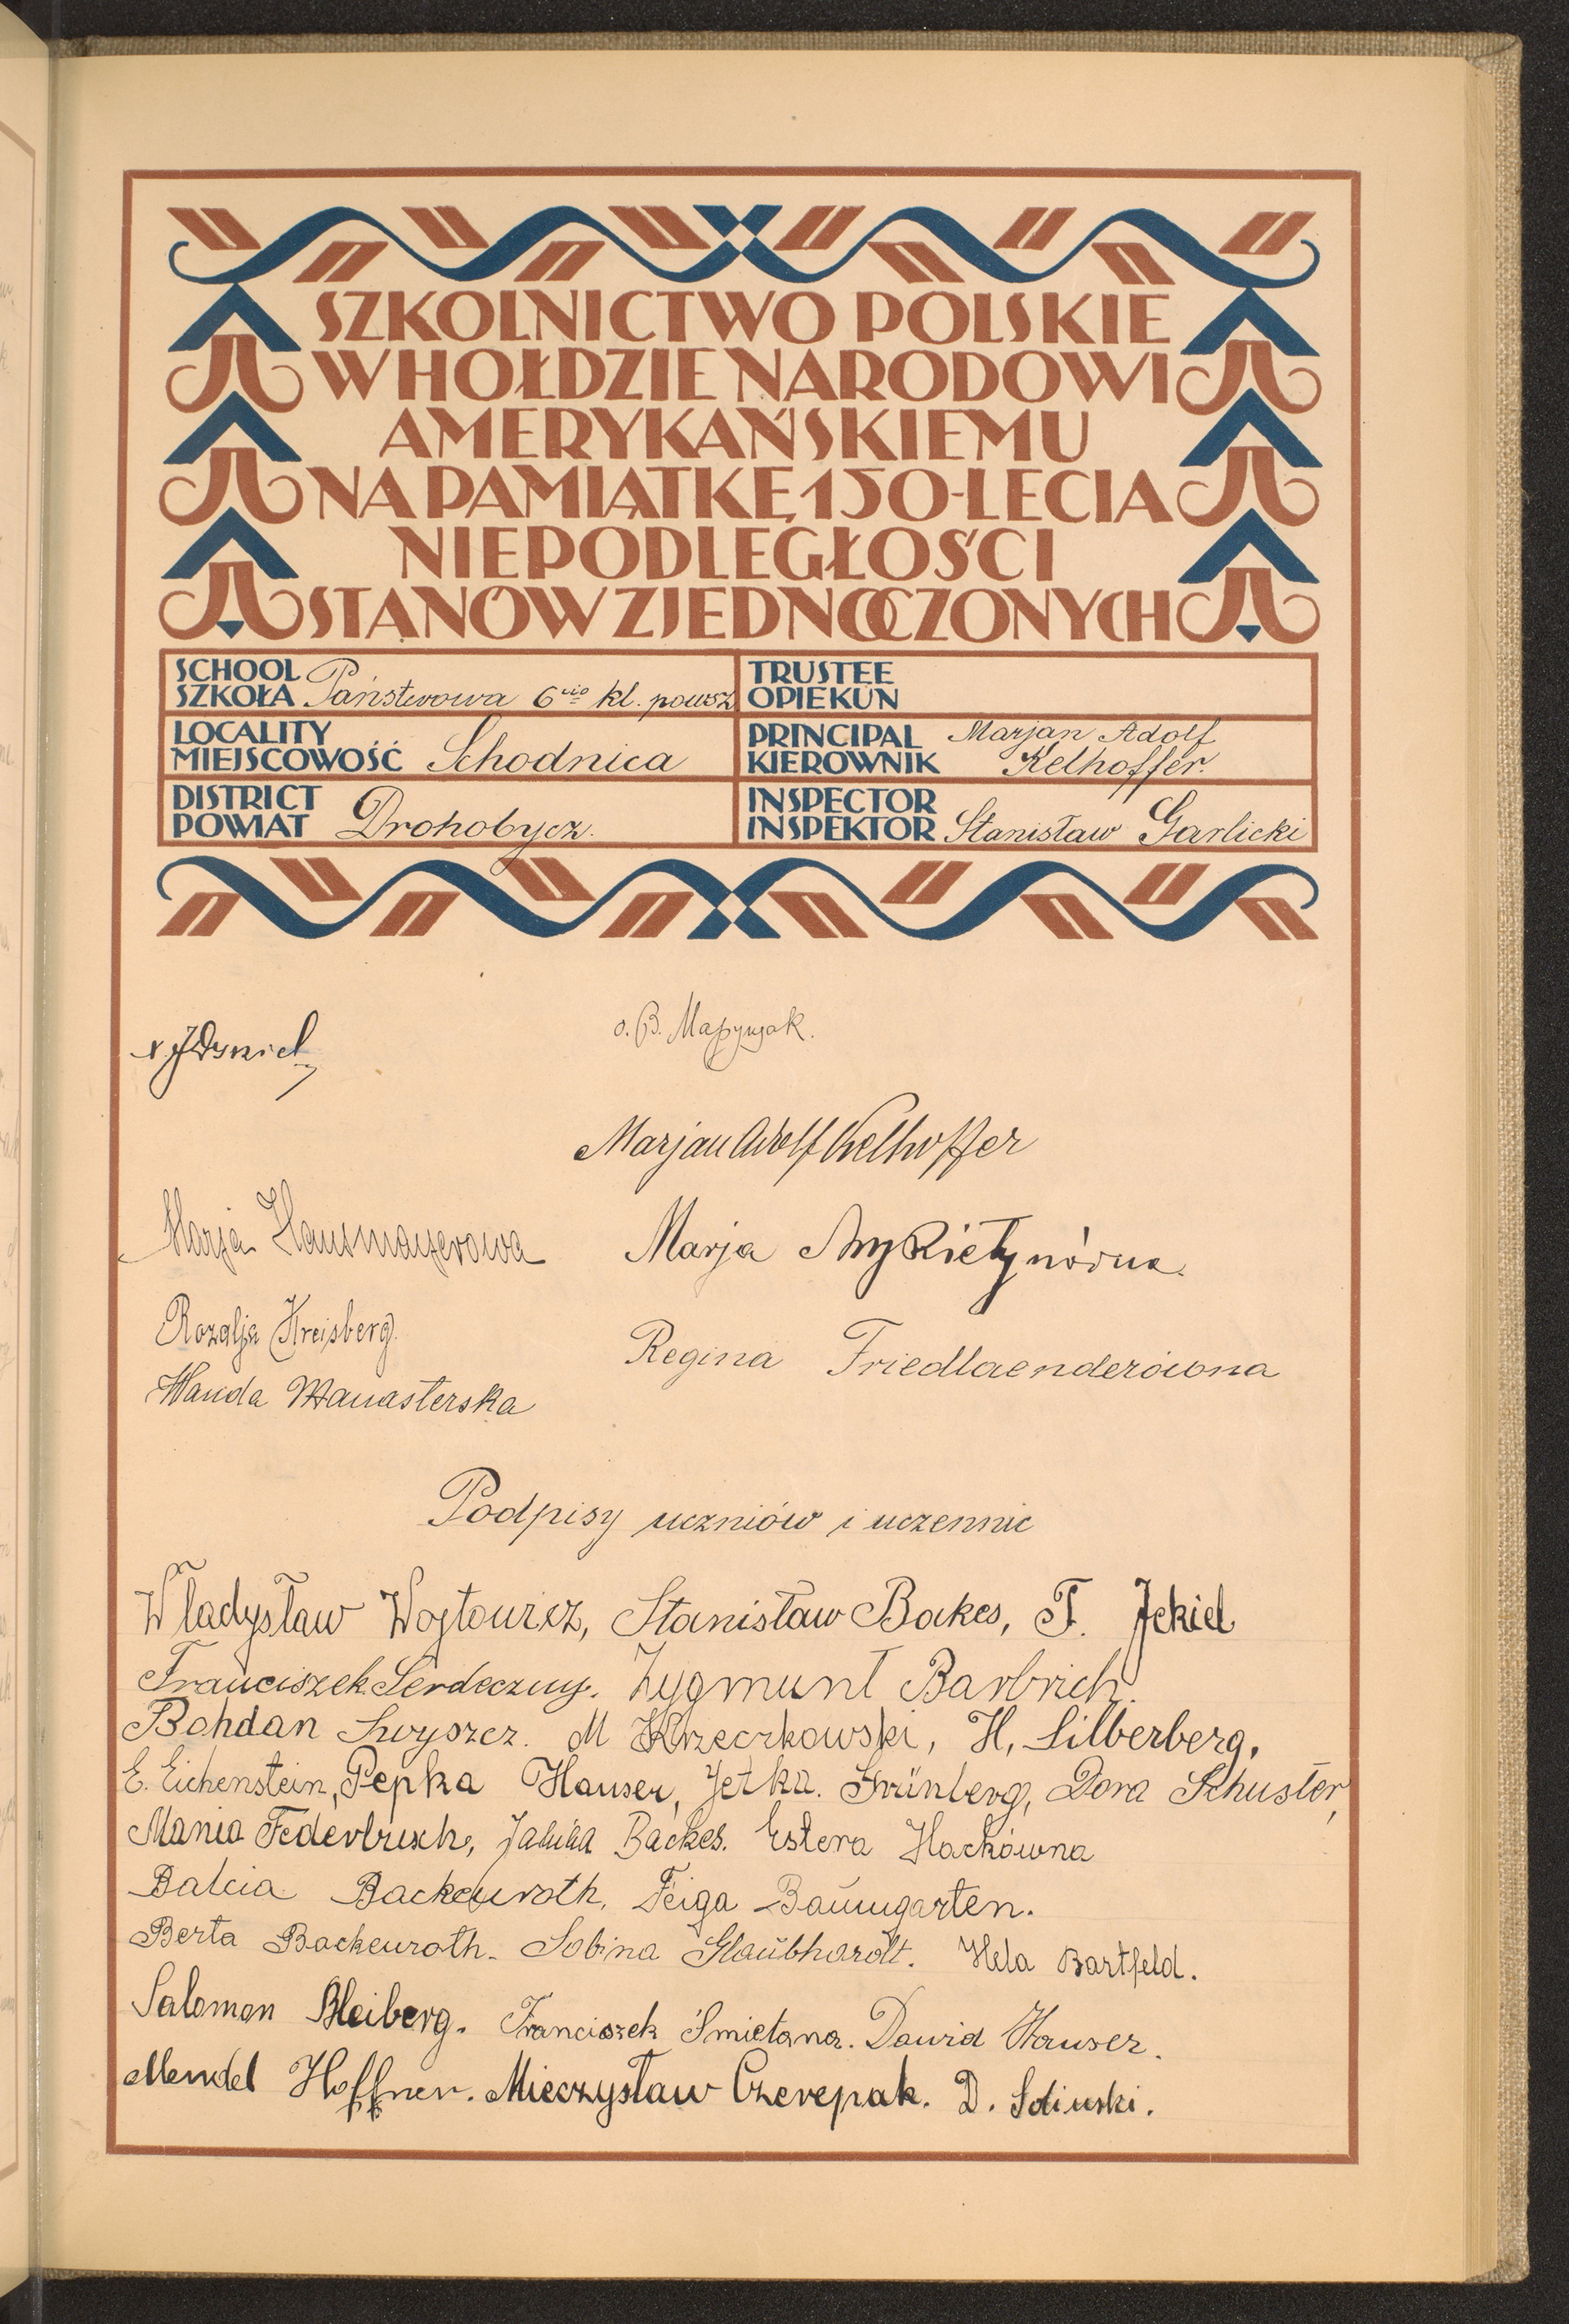 SZKOLNICTWO POLSKIE
W HOŁDZIE NARODOWI
AMERYKAŃSKIEMU
NA PAMIĄTKĘ 150-LECIA
NIEPODLEGŁOŚCI
STANÓW ZJEDNOCZONYCH
SCHOOL
SZKOŁA Państwowa 6cio kl. powsz
TRUSTEE
OPIEKUN
LOCALITY
MIEJSCOWOŚĆ Schodnica
PRINCIPAL Marjan Adolf
KIEROWNIK Kelhoffer.
DISTRICT
POWIAT Drohobycz.
INSPECTOR
INSPEKTOR Stanisław Garlicki
Marjan Adolf Kelhoffer
Marja Hausmayerowa
Marja Mykietynówna.
Rozalja Kreisberg.
Regina Friedlaenderówna
Wanda Manasterska
Podpisy uczniów i uczennic
Władysław Wojtowicz, Stanisław Bakes, T. Jekiel
Franciszek Serdeczny. Zygmunt Barbrich.
Bohdan M Krzeczkowski, H, Silberberg,
E. Eichenstein, Pepka Hauser, Jetka. Grünberg, Dora Schuster,
Mania Federbusch, Janina Backes. Estera Hackówna
Balcia Backenroth, Feiga Baumgarten.
Berta Backenroth. Sabina Glaubhardt. Hela Bartfeld.
Salomon Bleiberg. Franciszek Śmietana. Dawid Hauser.
Mendel Hoffner. Mieczysław Czerepak. D. Soliński.